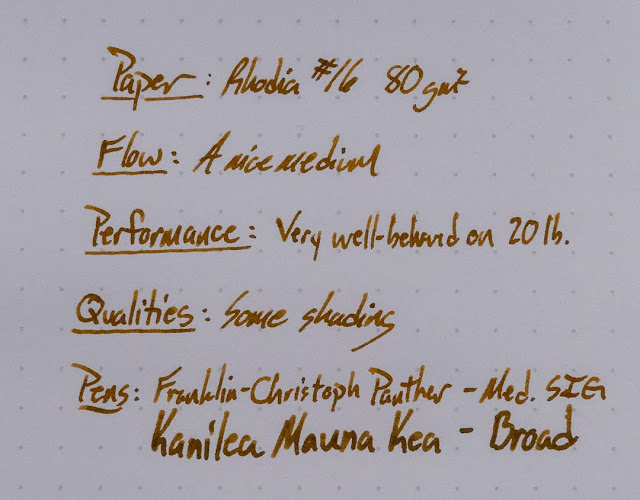 Paper: Rhodia #16 80 gm²
Flow: A nice medium
Performance: Very well-behaved on 20 lb.
Qualities: Some shading
Pens: Franklin-Christoph Panther - Med. SIG
Kanilea Mauna Kea - Broad